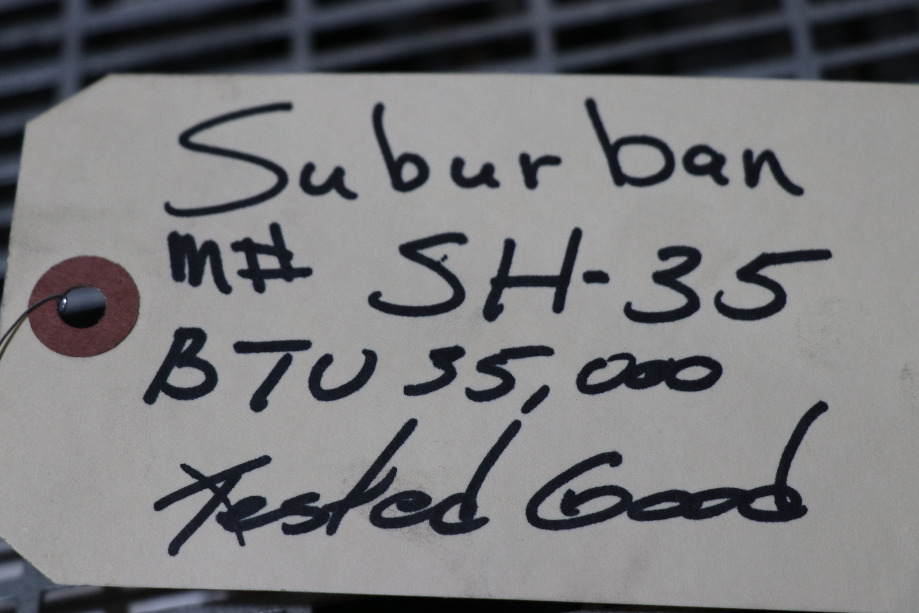 Suburban
M# SH-35
BTU 35,000
Tested Good